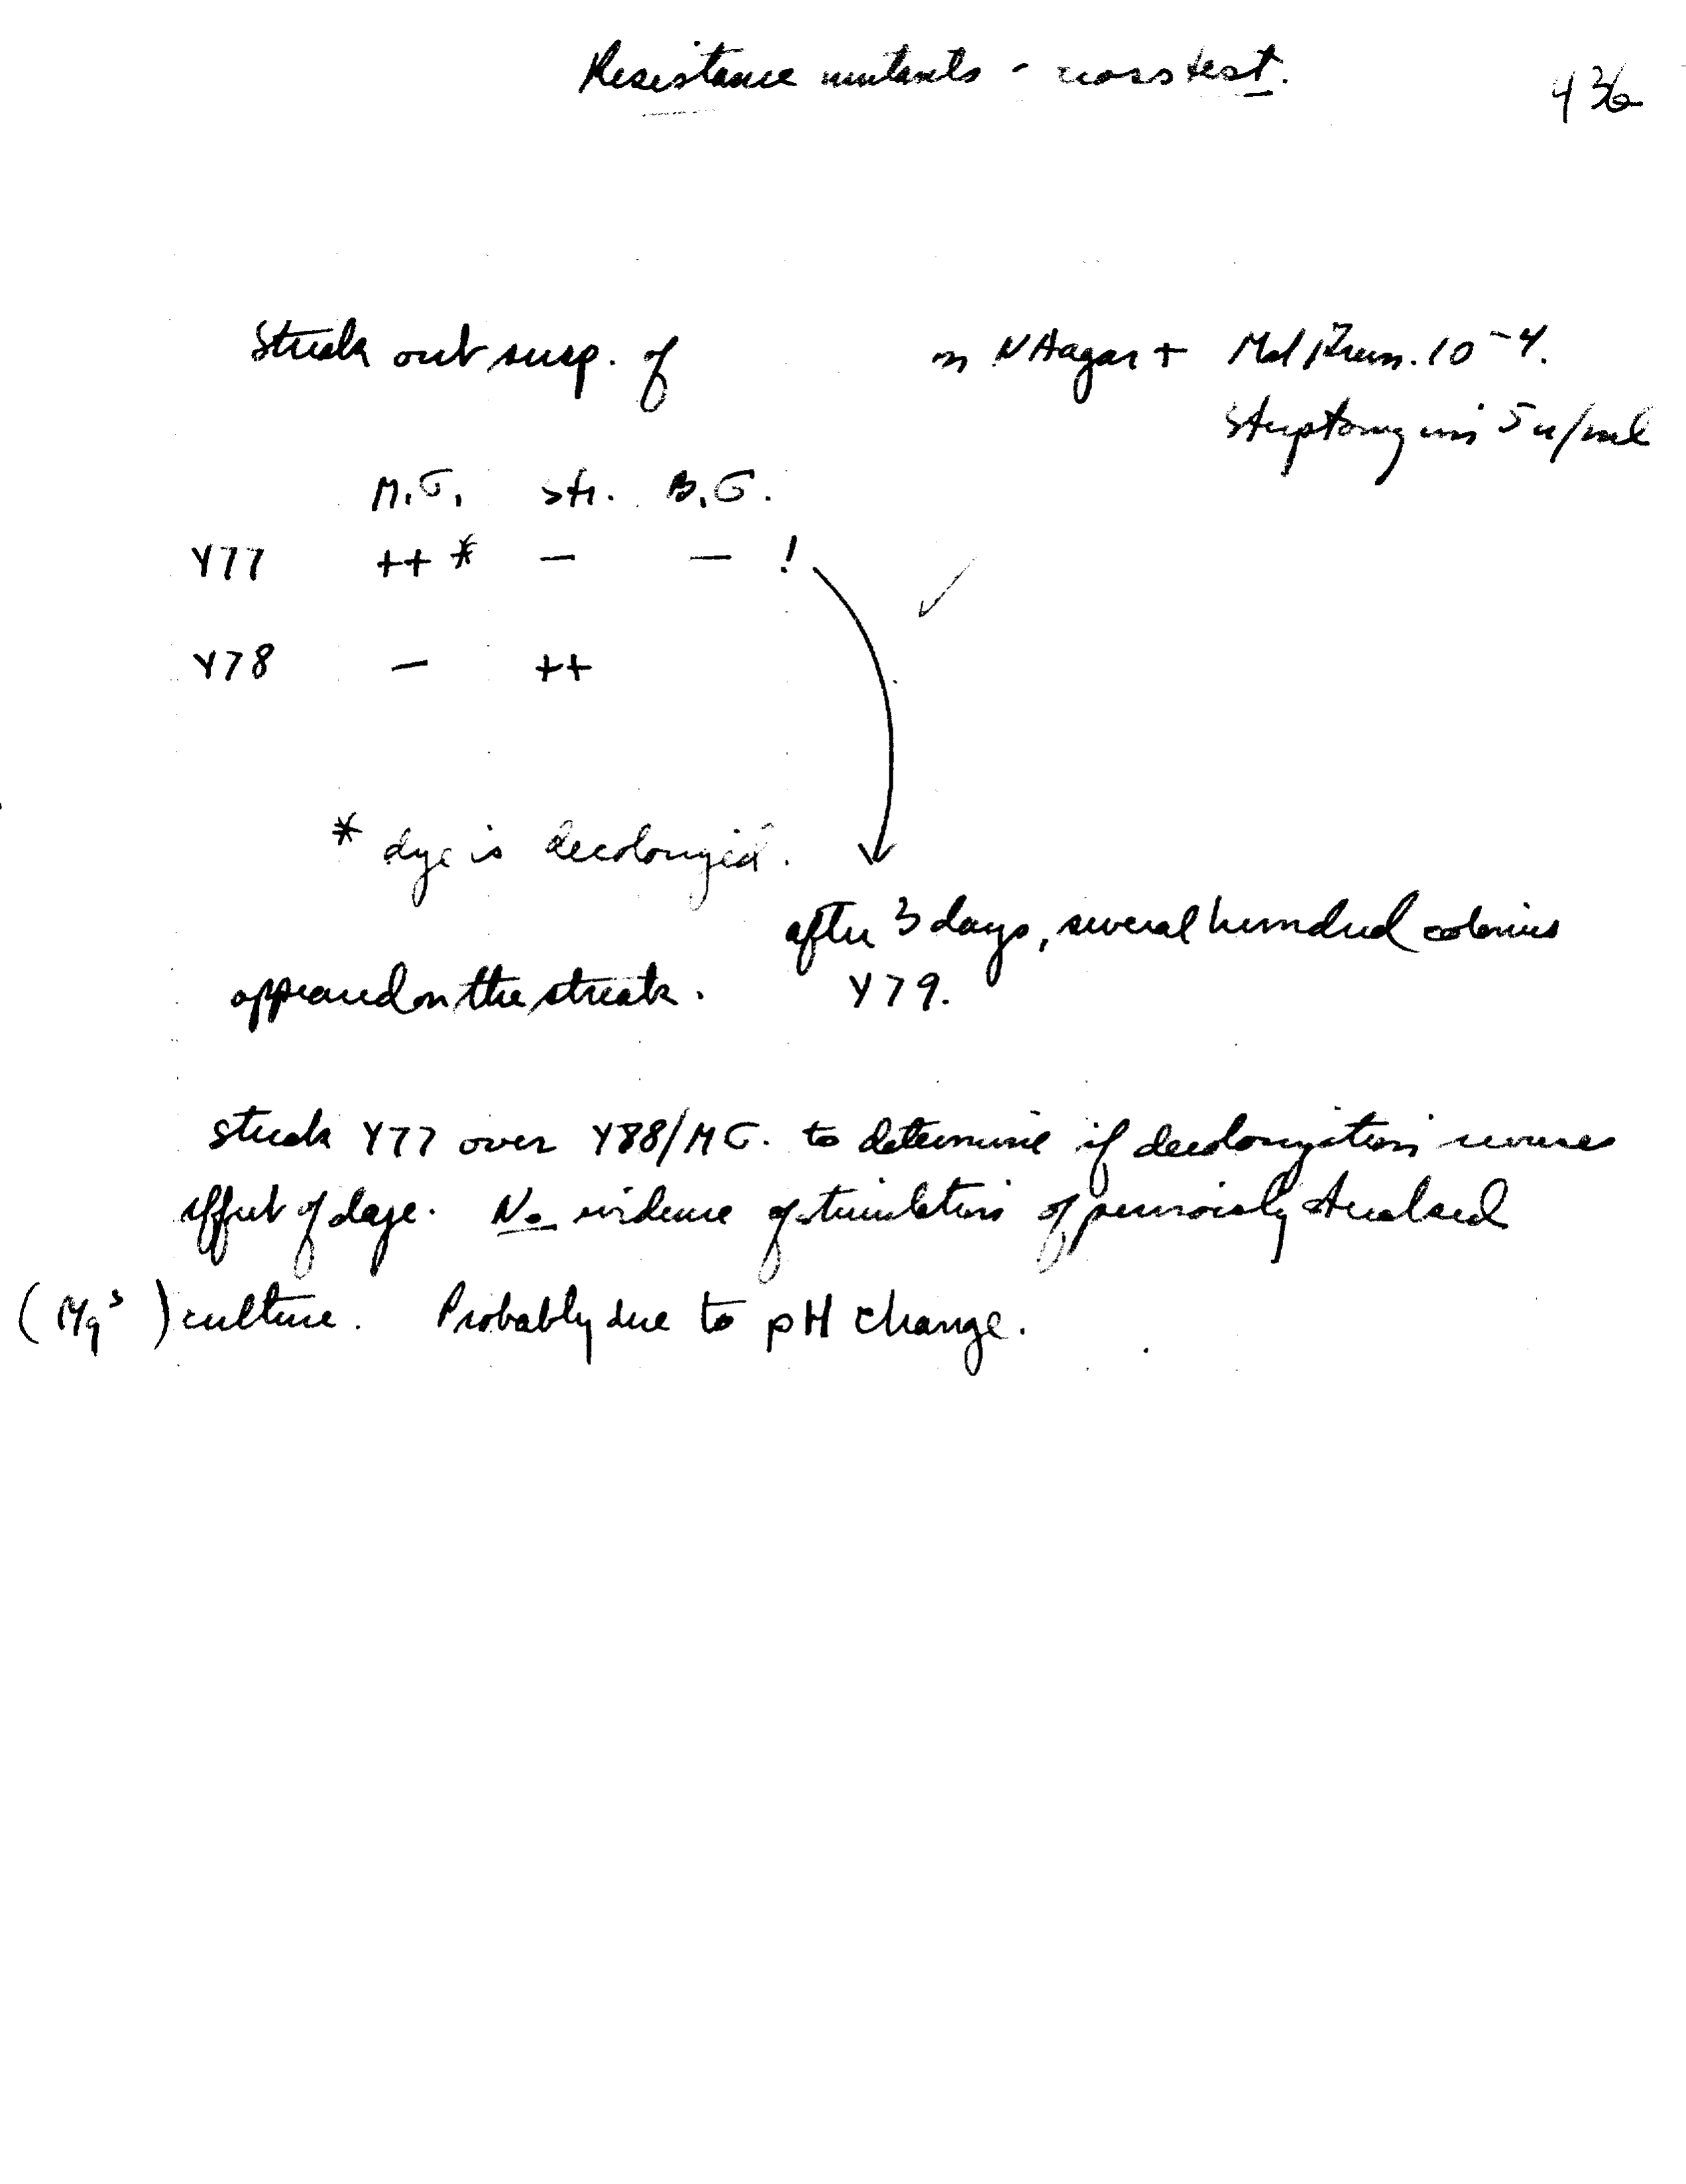 Resistance mutants - cross test.
436
Streak out susp. of on NAagar + 10⁻⁴.
Streptomycin 5 u/ml
M.G. str. B.G.
Y77 ++ * — — !
✓
Y78 — ++
* dye is decolorized.
after 3 days, several hundred colonies
appeared on the streak. Y79.
Streak Y77 over Y88/MG. to determine if decolorization reverses
effect of dye. No evidence of stimulation of previously streaked
(Mgˢ) culture. Probably due to pH change.